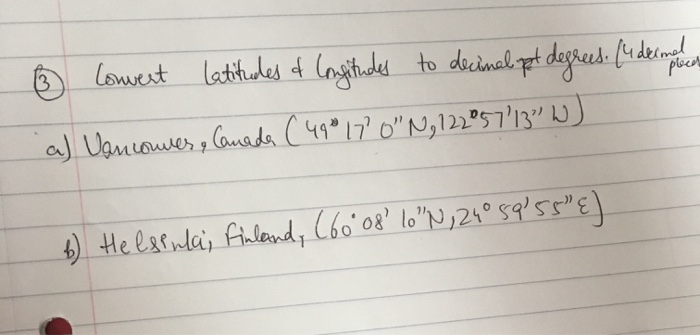 3 Convert latitudes & longitudes to decimal degrees. (4 decimal places
a) Vancouver, Canada (49° 17' 0" N, 122° 57' 13" W)
b) Helsenki, Finland, (60° 08' 10" N, 24° 59' 55" E)